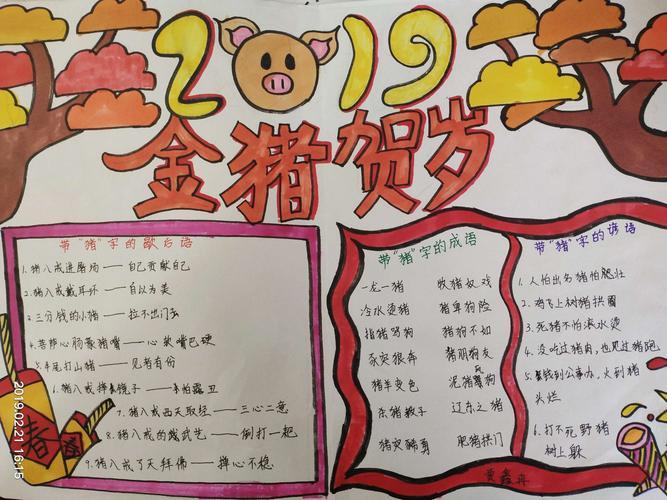 2019
金猪贺岁
带"猪"字的歇后语
1.猪八戒进屠场——自己贡献自己
2.猪八戒戴耳环——自以为美
3.三分钱的小猪——拉不出门去
4.菩萨心肠豪猪嘴——心软嘴巴硬
打山猪——见者有份
6.猪八戒摔镜子——怕露丑
7.猪八戒西天取经——三心二意
8.猪八戒的钱武艺——倒打一耙
9.猪八戒了天拜佛——掸心不稳
带"猪"字的成语
一龙一猪 牧猪奴戏
冷水烫猪 猪卑狗险
指猪骂狗 猪狗不如
豕突狼奔 猪朋狗友
猪羊变色 泥猪瓦狗
杀猪教子 辽东之猪
猪突豨勇 肥猪拱门
带"猪"字的谚语
1.人怕出名猪怕肥壮
2.鸡飞上树猪拱圈
3.死猪不怕滚水烫
4.没吃过猪肉,也见过猪跑
5.钱到公事办,火到猪
头烂
6.打不死野猪
树上躲
春
2019.02.21 16:15